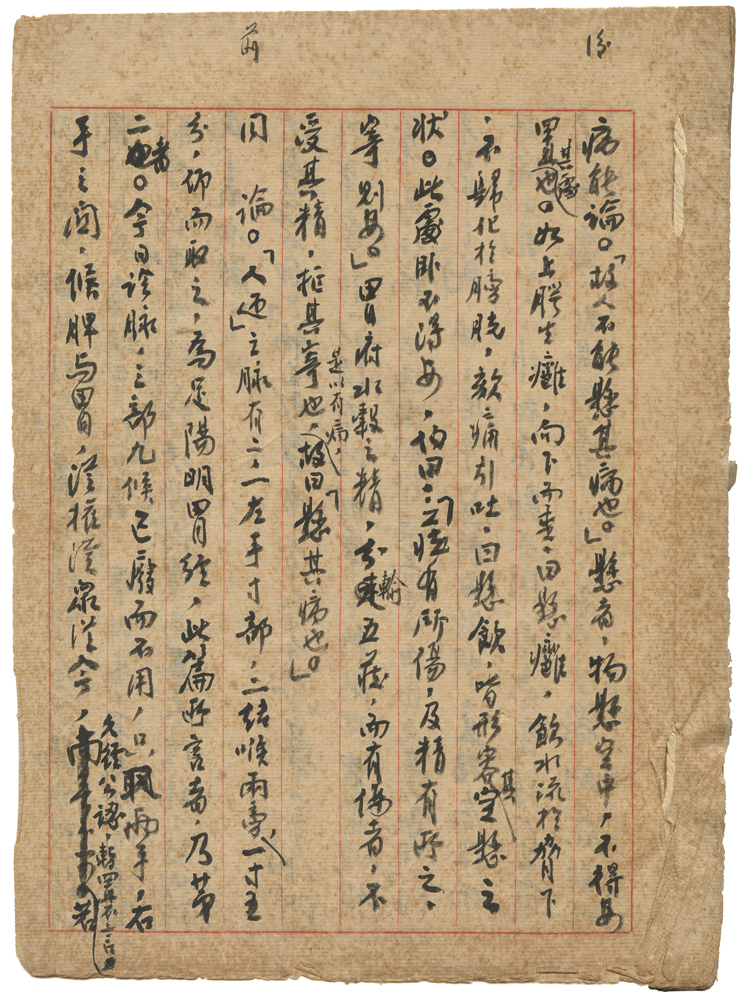 病能論。「故人不能懸其病也。」懸者，物懸空中，不得安
置其處也。如上腭生癰，向下而垂，曰懸癰，飲水流於脅下
，不歸化於膀胱，欬痛引吐，曰懸飲，皆形容其空懸之
狀。此處臥不得安，伯曰：「藏有所傷，及精有所之，
寄則安。」胃府水穀之精，分輸五藏，而有傷者，不
受其精，拒其寄也，是以有病，故曰「懸其病也。」
同　論。「人迎」之脉有二，一左手寸部，二結喉兩旁一寸五
分，仰而取之，為足陽明胃經，此篇所言者，乃第
二者。今日診脉，三部九候已廢而不用，只診兩手，右
手之關，候脾与胃，從權從眾從今，久經公認，暫置不言，若